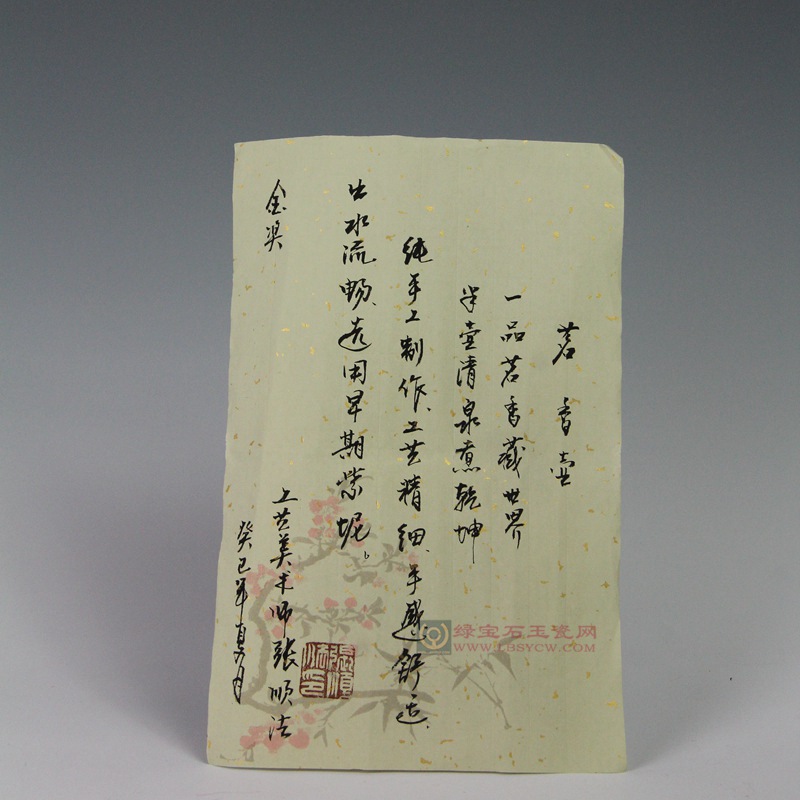 茗香壶
一品茗香藏世界
半壶清泉煮乾坤
纯手工制作、工艺精细、手感舒适、
出水流畅、选用早期紫坭。
金奖
工艺美术师张顺法
癸巳年夏月
張順法印
绿宝石玉瓷网
WWW.LBSYCW.COM